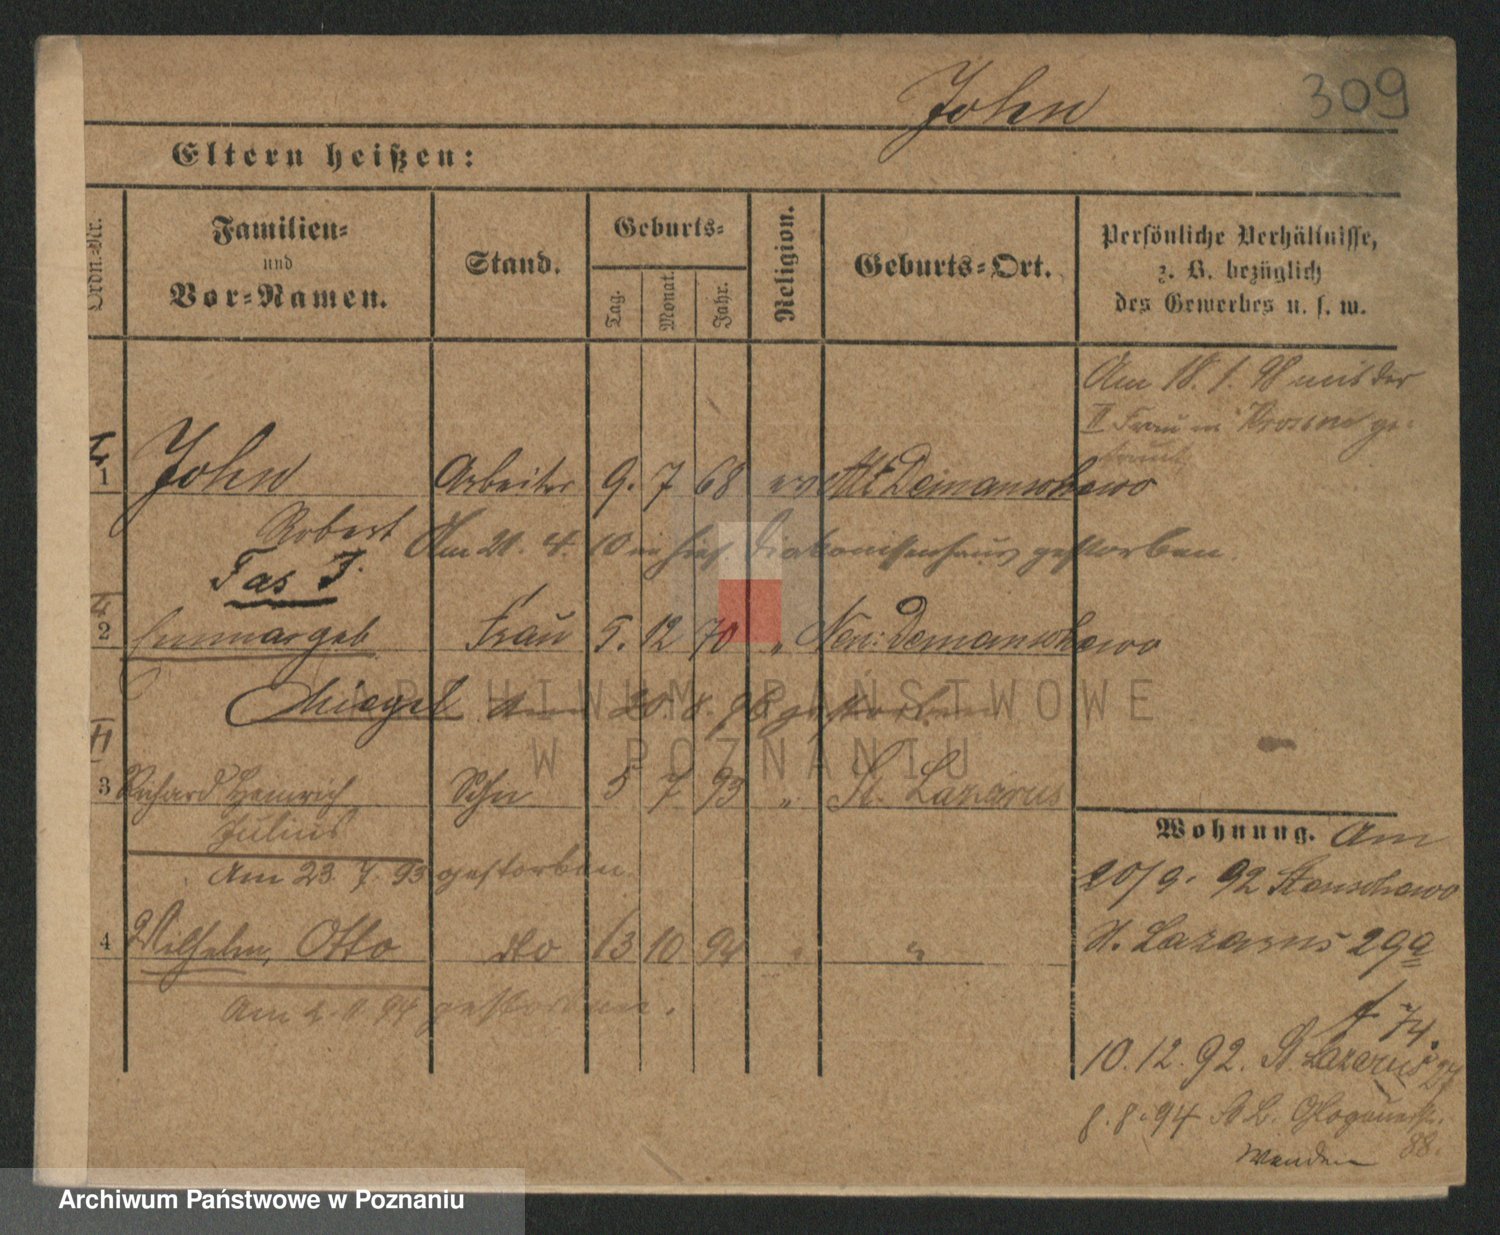 John 309
Eltern heißen:
Ordn.-Nr.
Familien-
und
Vor-Namen.
Stand.
Geburts-
Tag.
Monat.
Jahr.
Religion.
Geburts-Ort.
Persönliche Verhältnisse,
z. B. bezüglich
des Gewerbes u. s. w.
Am 18. 1. 98 mit der
II Frau in ge-
traut
1 John Arbeiter 9. 7 68 ev Alt Demanschewo
Robert Am 21. 4. 10 in hies. Diakonissenhaus gestorben.
2 Emma geb Frau 5. 12 70 " Neu: Demanschewo
Am 20. 8. 96 gestorben
3 Richard Heinrich Sohn 5 7 93 " St. Lazarus
Julius
Am 23. 7. 93 gestorben
4 Wilhelm, Otto dto 13 10 94 " "
Am gestorben.
Wohnung. Am
20/9. 92
St. Lazarus 29a
f 74.
10. 12. 92. St Lazarus
8. 8. 94 St L. Glogauerstr.
88.
Wenden
ARCHIWUM PAŃSTWOWE
W POZNANIU
Archiwum Państwowe w Poznaniu